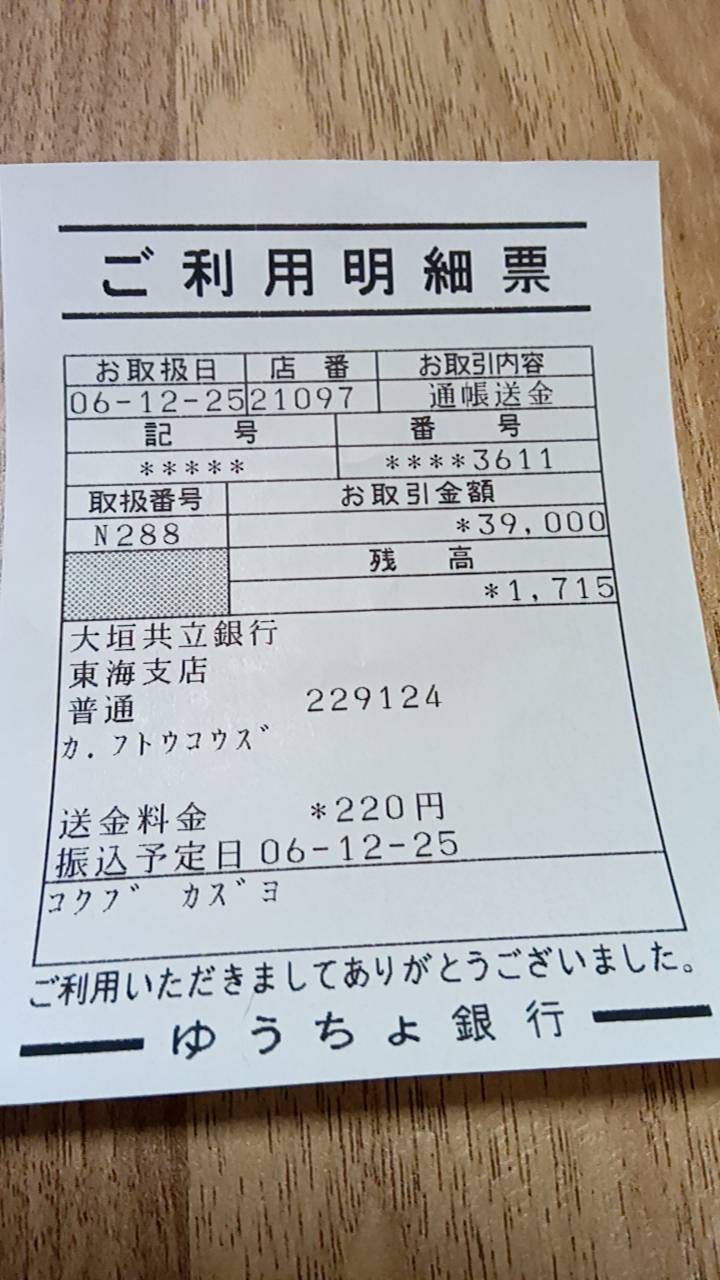 ご利用明細票
お取扱日 店番 お取引内容
06-12-25 21097 通帳送金
記号 番号
***** ****3611
取扱番号 お取引金額
N288 *39,000
残高
*1,715
大垣共立銀行
東海支店
普通 229124
カ.フトウコウズ゙
送金料金 *220円
振込予定日 06-12-25
コクブ゙ カズ゙ヨ
ご利用いただきましてありがとうございました。
ゆうちょ銀行